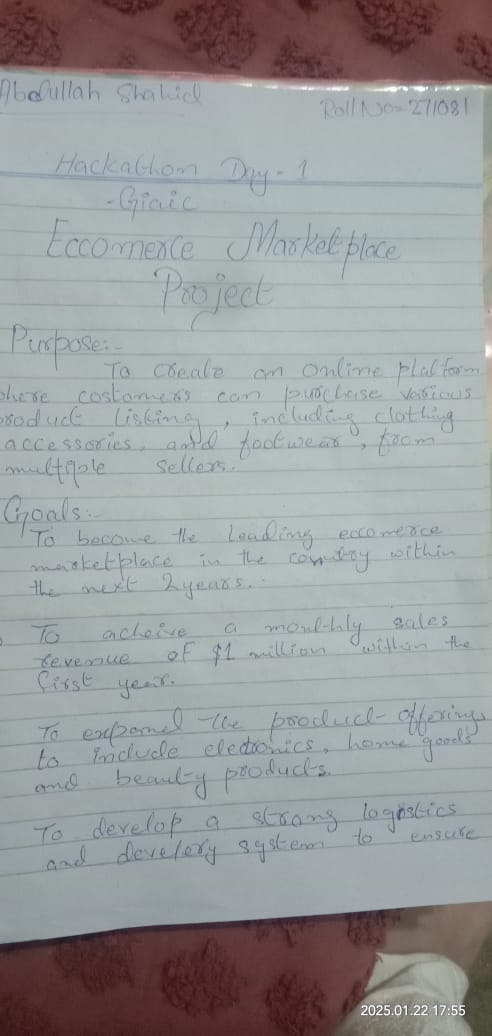 Abdullah Shahid
Roll No= 271081
Hackathon Day-1
-Giaic
Eccomerce Marketplace
Project
Purpose:-
To create an online platform
where costomers can purchase various
product listing, including clothing
accessories, and footwear, from
multiple sellers.
Goals:-
To become the leading eccomerce
marketplace in the country within
the next 2 years.
To acheive a monthly sales
revenue of $1 million within the
first year.
To expand the product offerings
to include electronics, home goods
and beauty products.
To develop a strong logistics
and develery system to ensure
2025.01.22 17:55